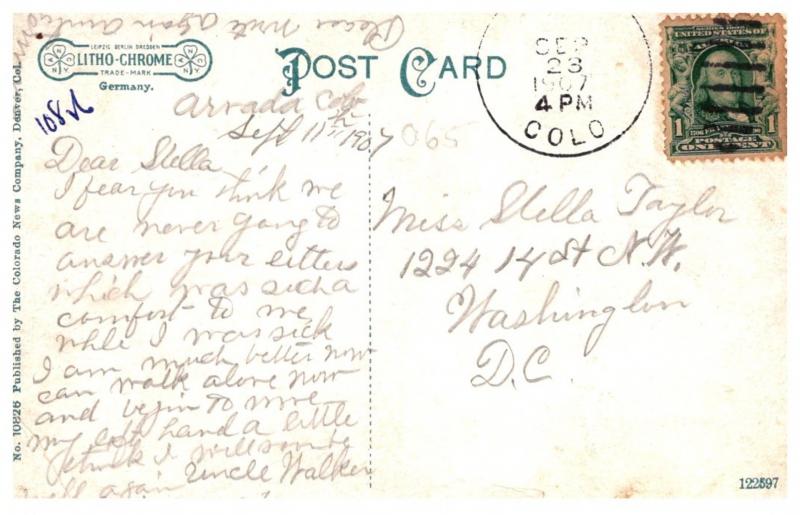 Please write again
LEIPZIG BERLIN DRESDEN
LITHO-CHROME
TRADE-MARK
Germany.
POST CARD
108
065
SEP
23
1907
4 PM
COLO
SERIES 1902
UNITED STATES OF
AMERICA
1 1
POSTAGE
ONE CENT
Arvada Colo
Sept 11th 1907
Dear Stella
I fear you think we
are never going to
answer your letters
which was such a
comfort to me
while I was sick
I am much better now
can walk alone now
and begin to move
my left hand a little
I think I will soon be
well again Uncle Walker
Miss Stella Taylor
1224 14 St N.W.
Washington
D.C.
No. 10826 Published by The Colorado News Company, Denver, Col.
122597